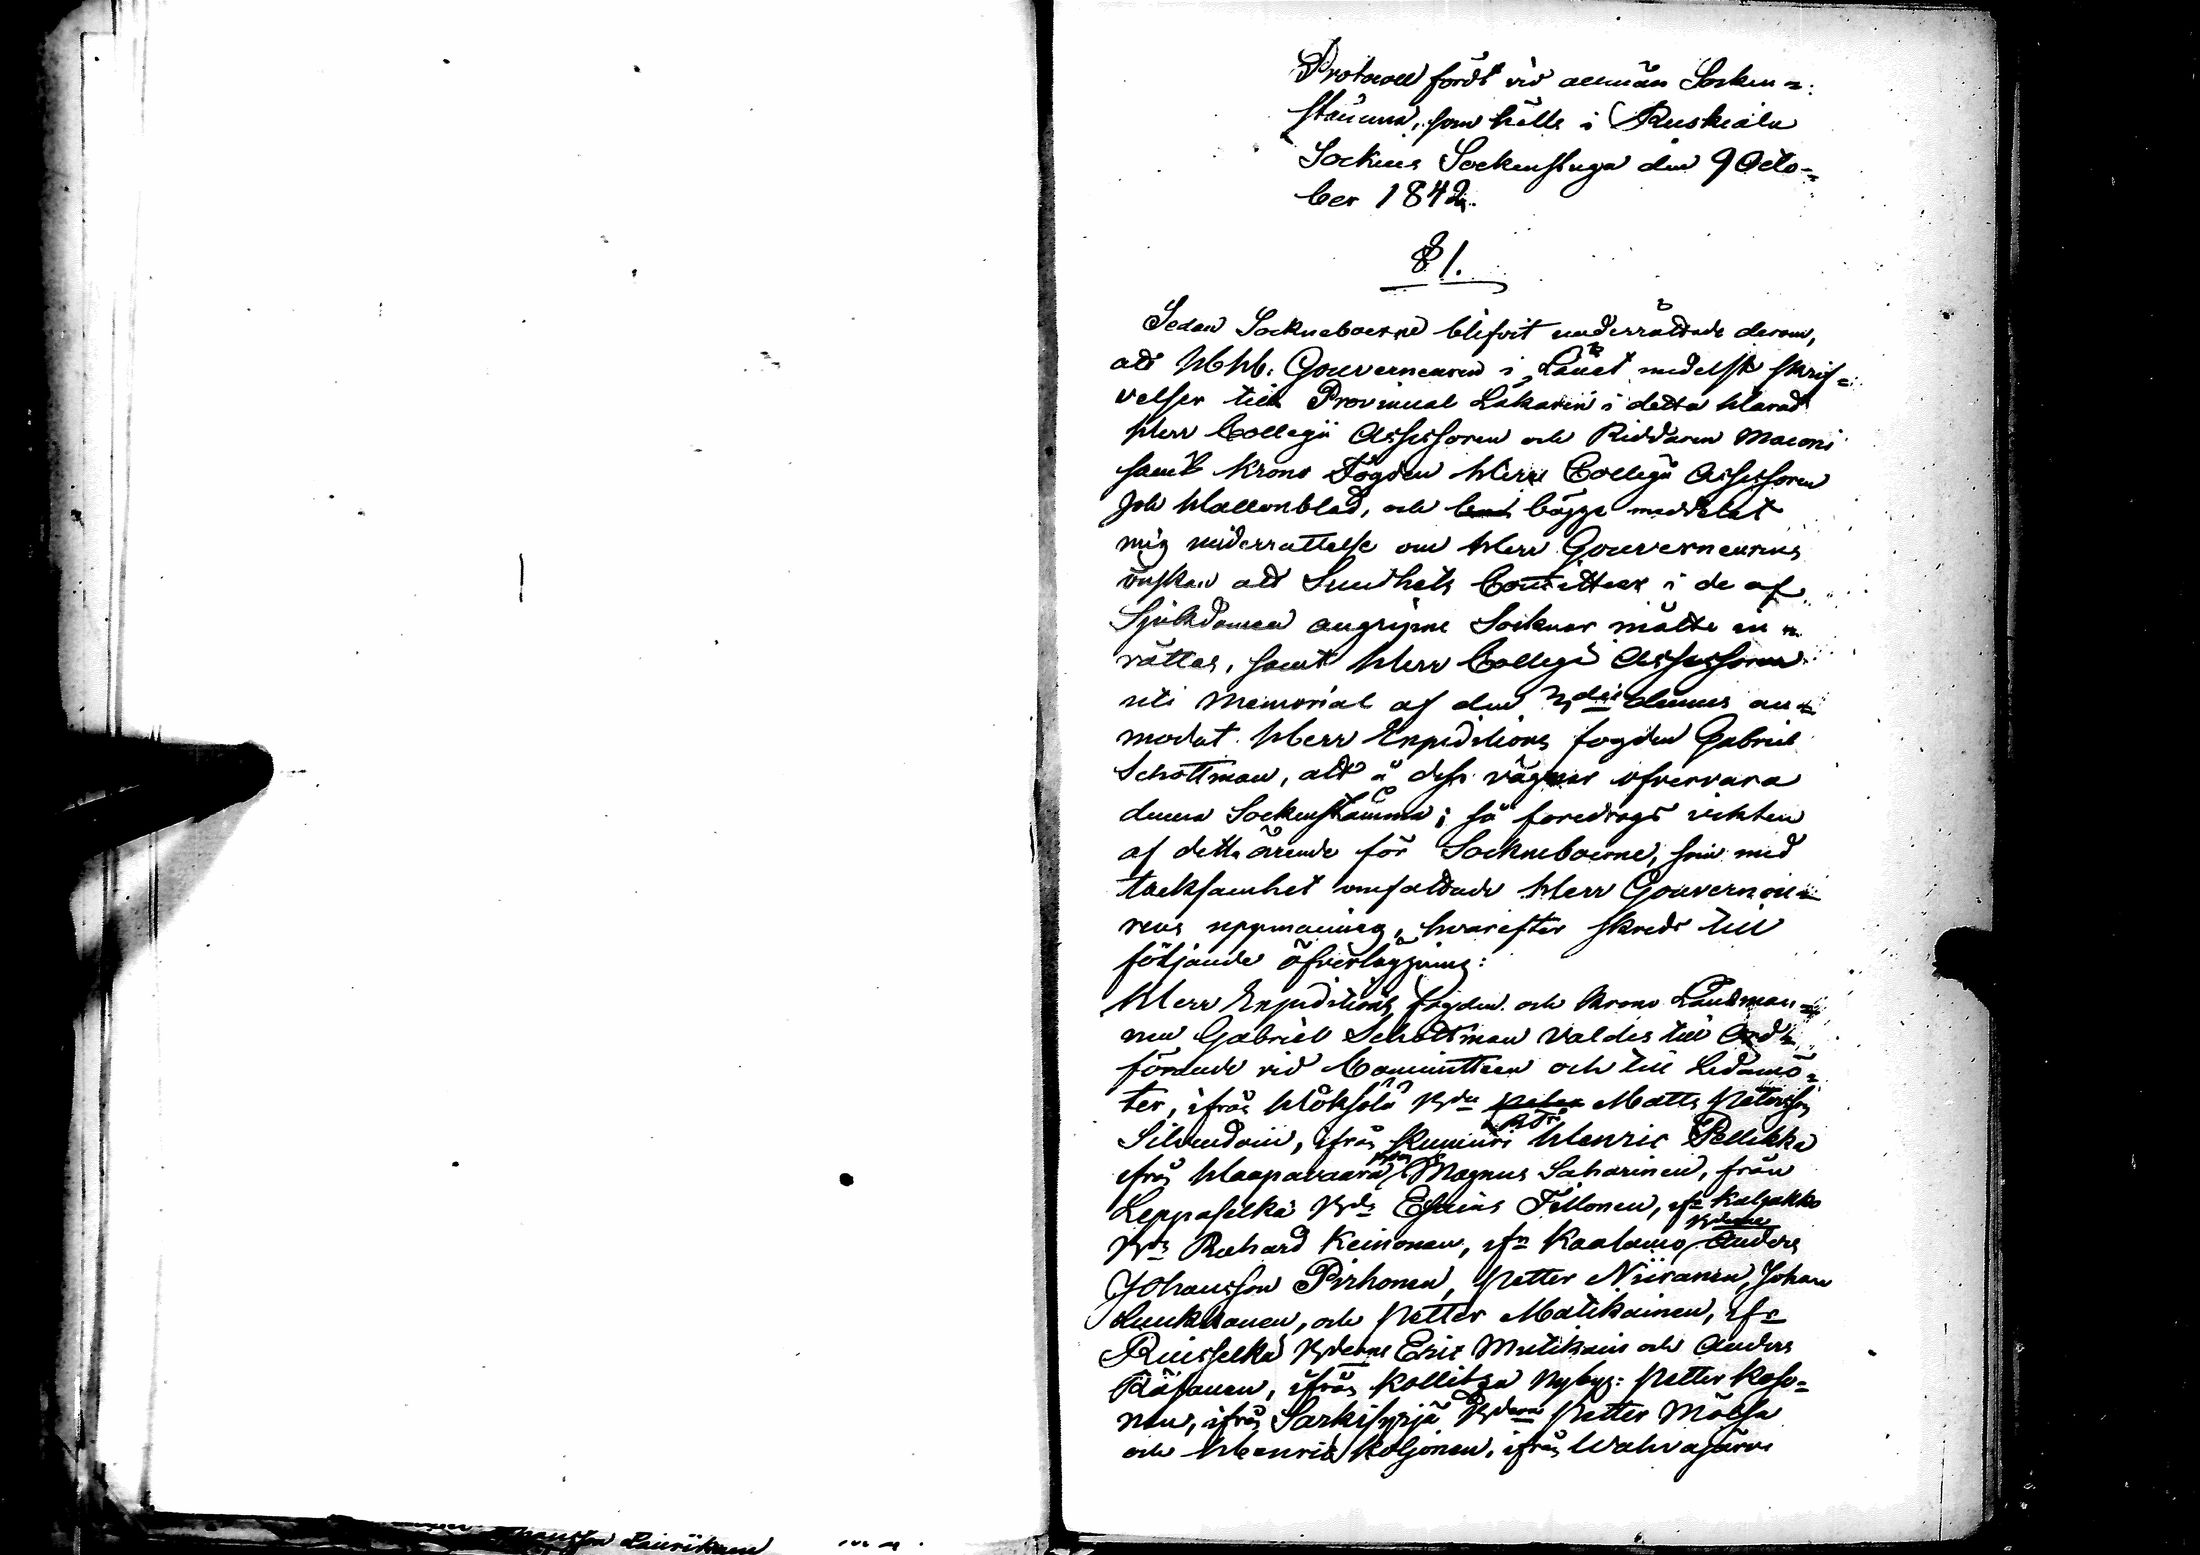 Protocoll fördt vid allmän Socken=
stämma, som hölls i Ruskiala
Sockens Sockenstuga den 9 Octo=
ber 1842.
§ 1.
Sedan Sockneboerne blifvit underrättade derom,
att H. H. Gouverneuren i Länet medelst skrif=
velser till Provincial Läkaren i detta Härad
Herr Collegii Assessoren och Riddaren Maconi
samt Krono Fogden Herr Collegii Assessoren
Joh Hallonblad, och bägge meddelat
mig underrättelse om Herr Gouverneurens
önskan att Sundhets Comitteer i de af
Sjukdomen angripne Soknar måtte in=
rättas, samt Herr Collegii Assessoren
uti Memorial af den dennes an=
modat Herr Expeditions fogden Gabriel
Schottman, att å dess vägnar öfvervara
denna Sockenstämma; så föredrogs vikten
af detta ärende för Sockneboerne, som med
tacksamhet omfattade Herr Gouverneu=
rens uppmaning, hvarefter skreds till
följande öfverläggning:
Herr Expeditions fogden och Krono Länsman=
nen Gabriel Schottman valdes till Ord=
förande vid Committeen och till Ledamö=
ter, ifrån Höksölä Bdn Matts Petersson
Silvendoin, ifrån Kumuri Henric Pellikka
ifrån Haapavaara Magnus Saharinen, från
Leppäselkä Bdn Esaias Tillonen, ifn Kalpakko
Bdn Richard Keinonen, ifn Kaalamo Bderne Anders
Johansson Pirhonen, Petter Niiranen, Johan
Luukkanen, och Petter Matikainen, ifn
Ruisselkä Bderne Eric Mutikain och Anders
Räsänen, ifrån Kollitza Nybyg: Petter Koso=
nen, ifrån Särkisyrjä Bderne Petter Möesa
och Henric Koljonen, ifrån Wahvajärvi
Laurikain